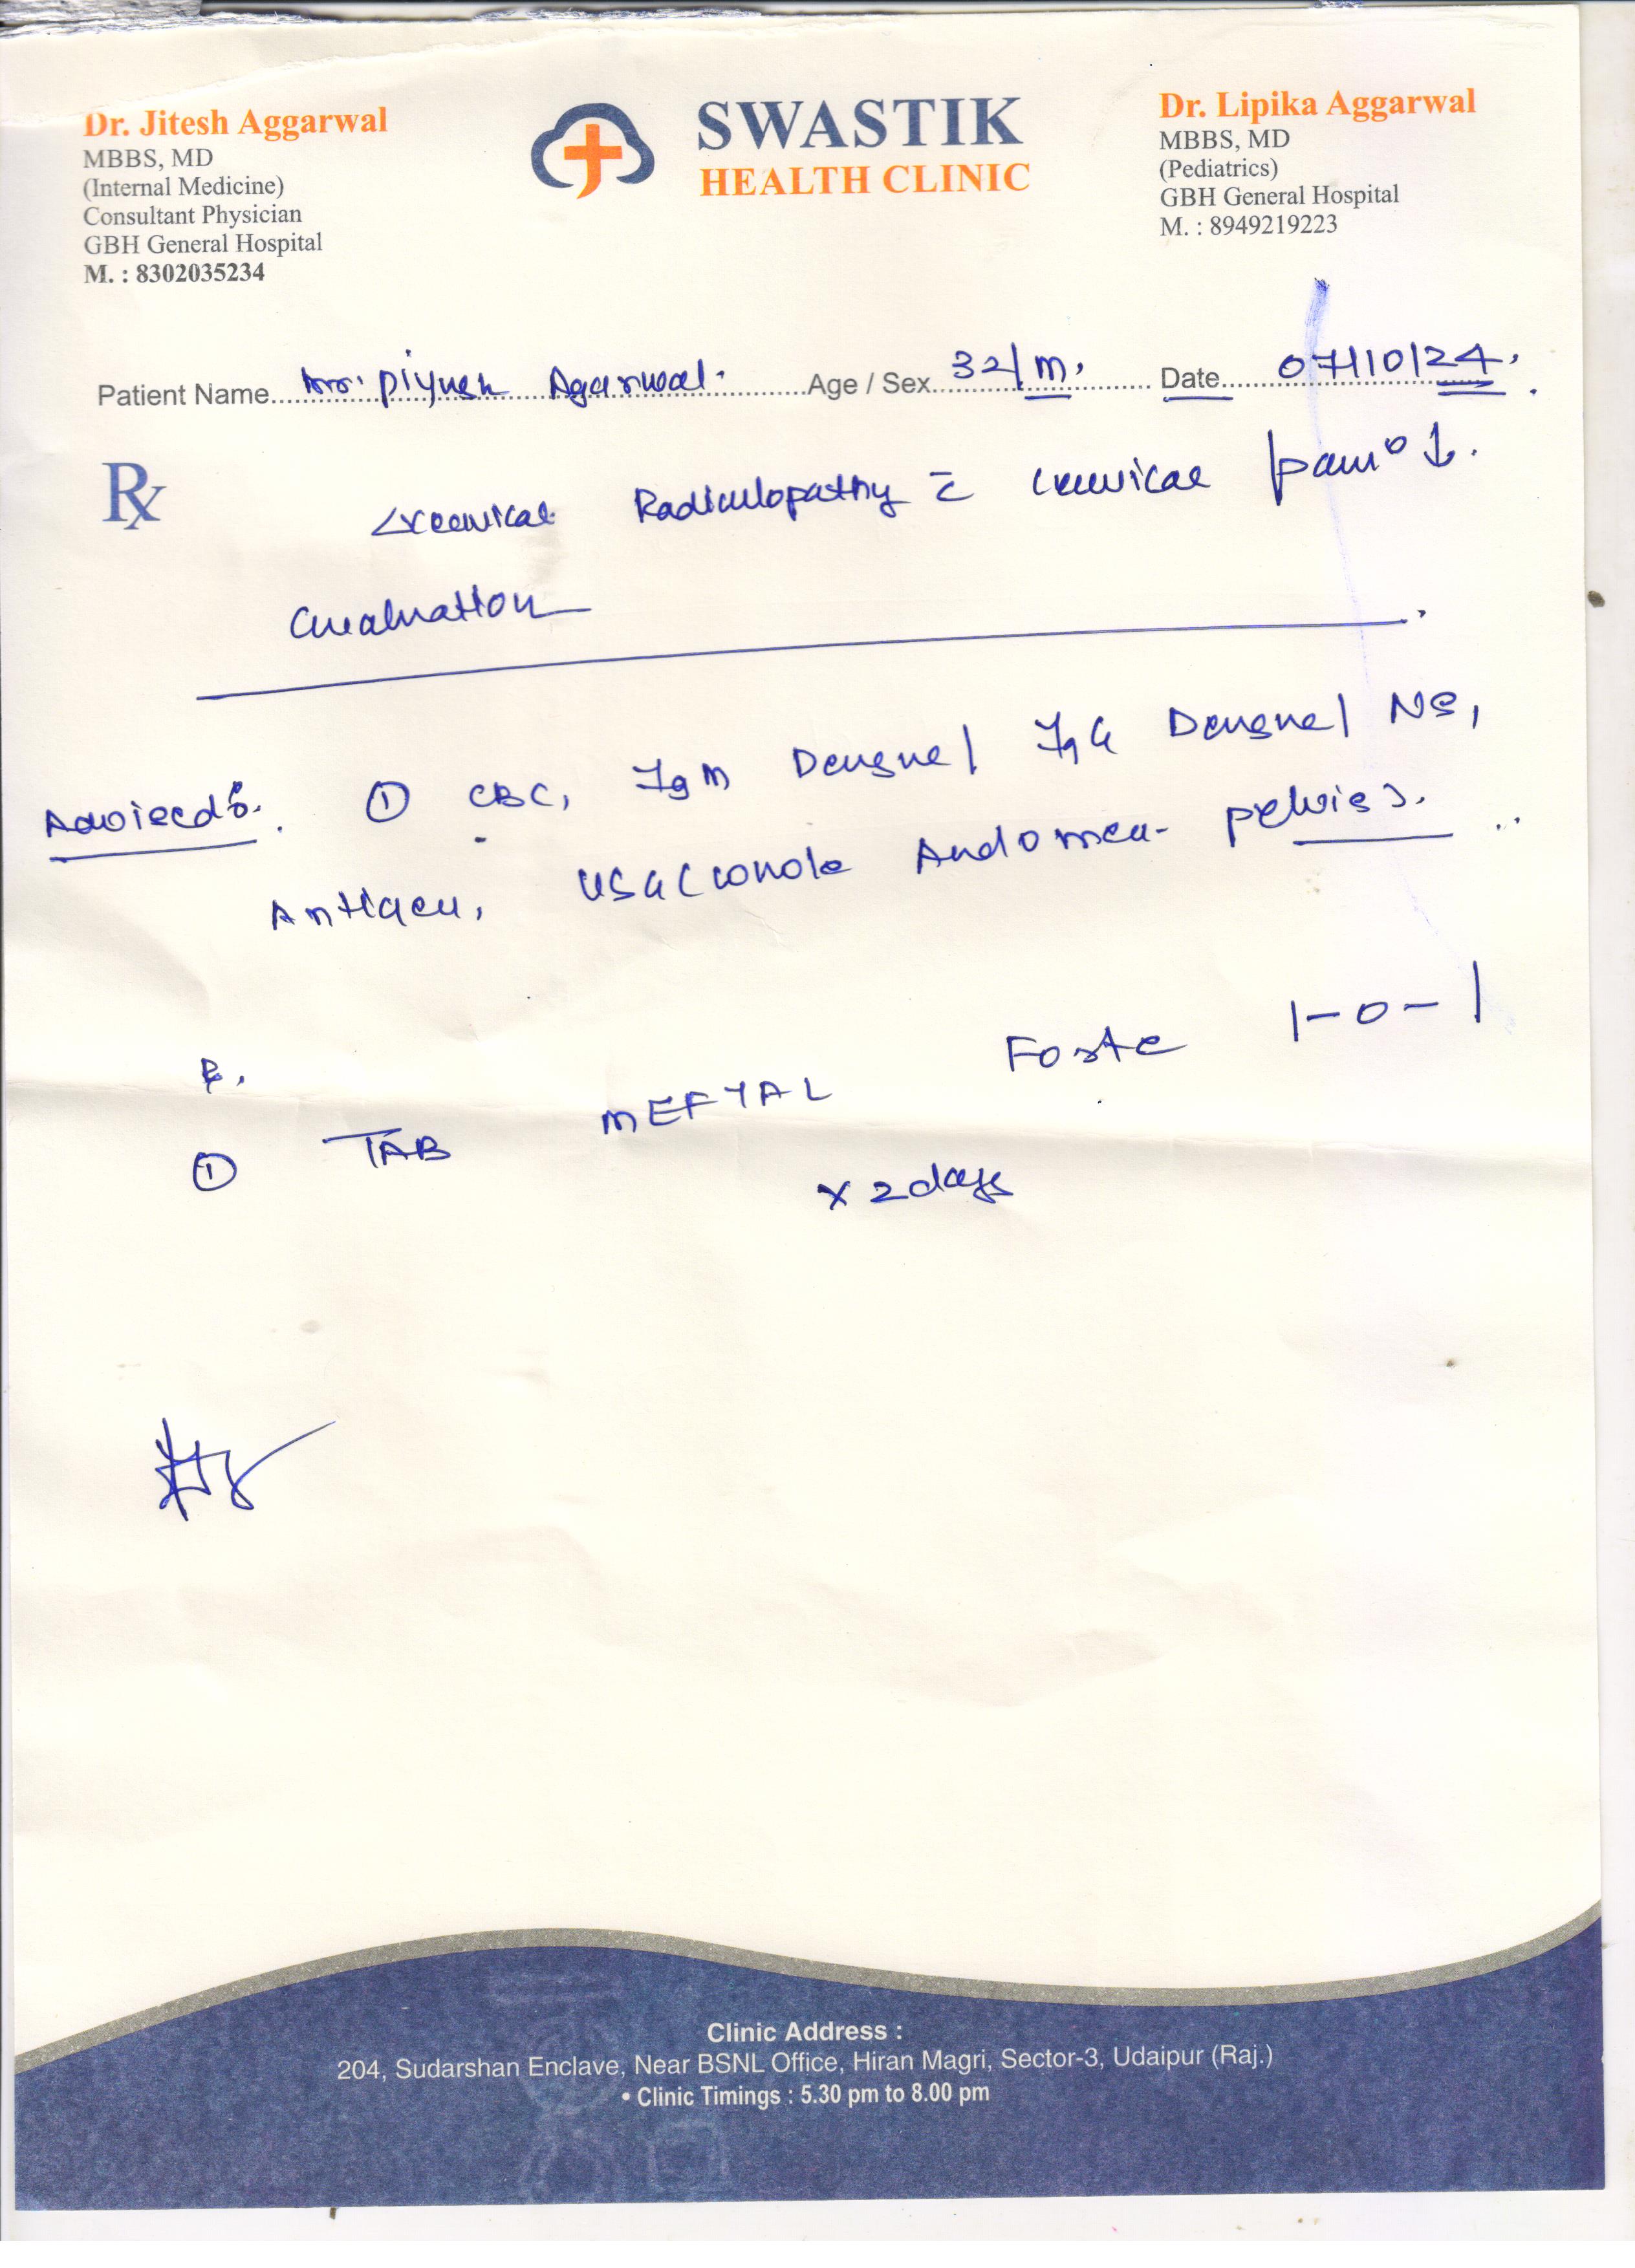 Dr. Jitesh Aggarwal
MBBS, MD
(Internal Medicine)
Consultant Physician
GBH General Hospital
M. : 8302035234
SWASTIK
HEALTH CLINIC
Dr. Lipika Aggarwal
MBBS, MD
(Pediatrics)
GBH General Hospital
M. : 8949219223
Patient Name Mr. Piyush Agarwal. Age / Sex 32/M. Date 07/10/24.
Rx
Cervical Radiculopathy c̄ cervical pain ↓.
evaluation
Adviced:. ① CBC, IgM Dengue/ IgG Dengue/ NS,
Antigen, USG (whole Abdomen - pelvis).
R.
① TAB MEFTAL Forte 1-0-1
x 2 days
Clinic Address :
204, Sudarshan Enclave, Near BSNL Office, Hiran Magri, Sector-3, Udaipur (Raj.)
• Clinic Timings : 5.30 pm to 8.00 pm